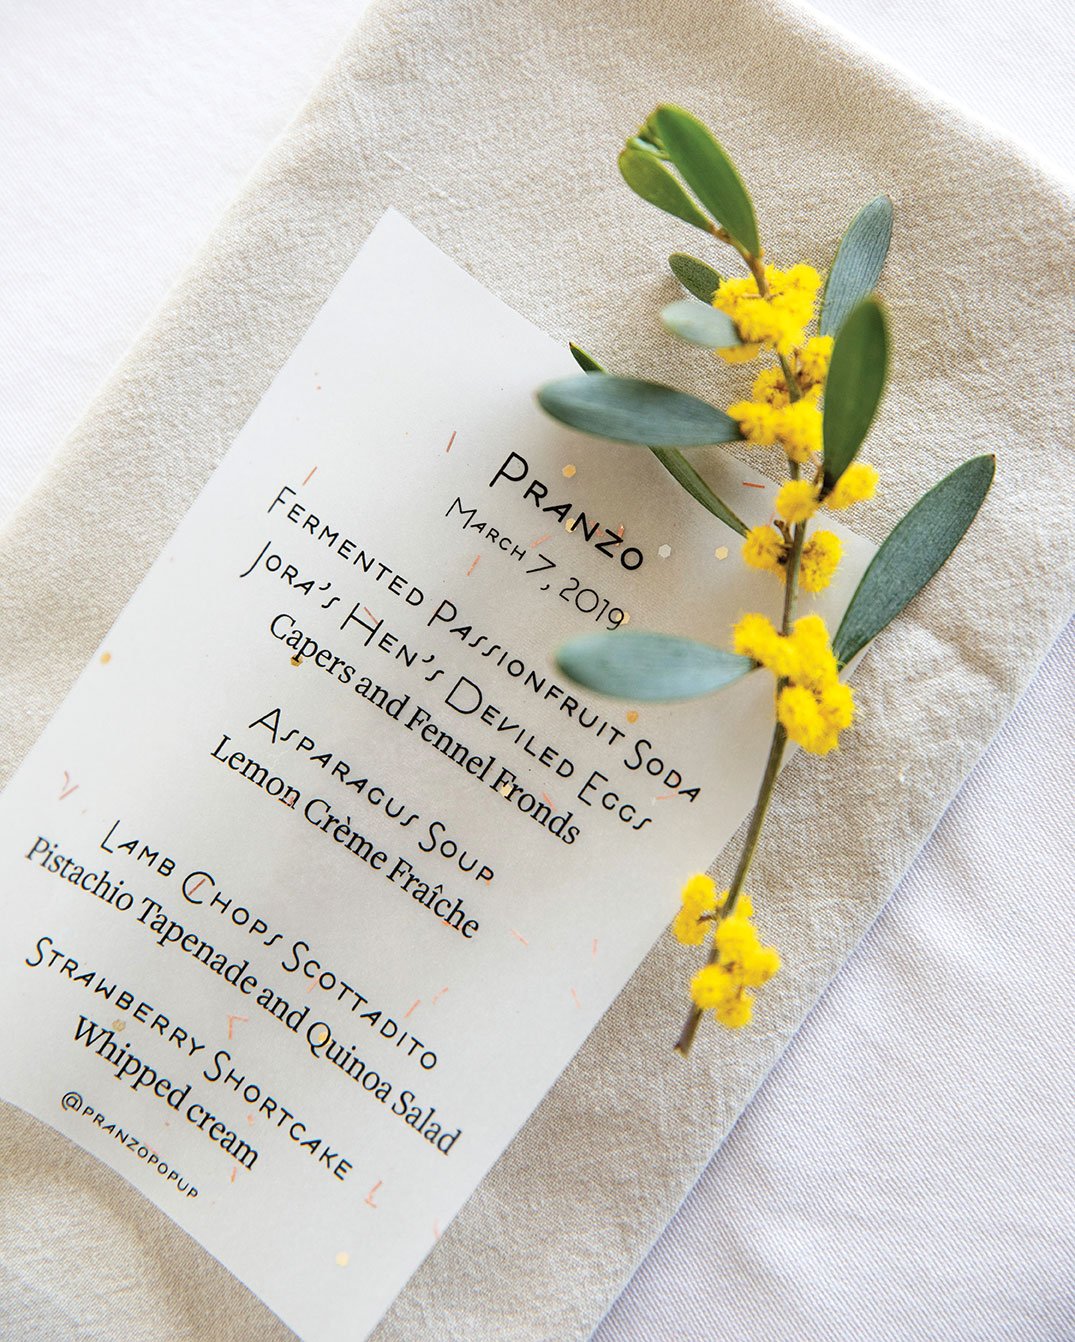 Pranzo
March 7, 2019
Fermented Passionfruit Soda
Jora's Hen's Deviled Eggs
Capers and Fennel Fronds
Asparagus Soup
Lemon Crème Fraîche
Lamb Chops Scottadito
Pistachio Tapenade and Quinoa Salad
Strawberry Shortcake
Whipped cream
@pranzopopup